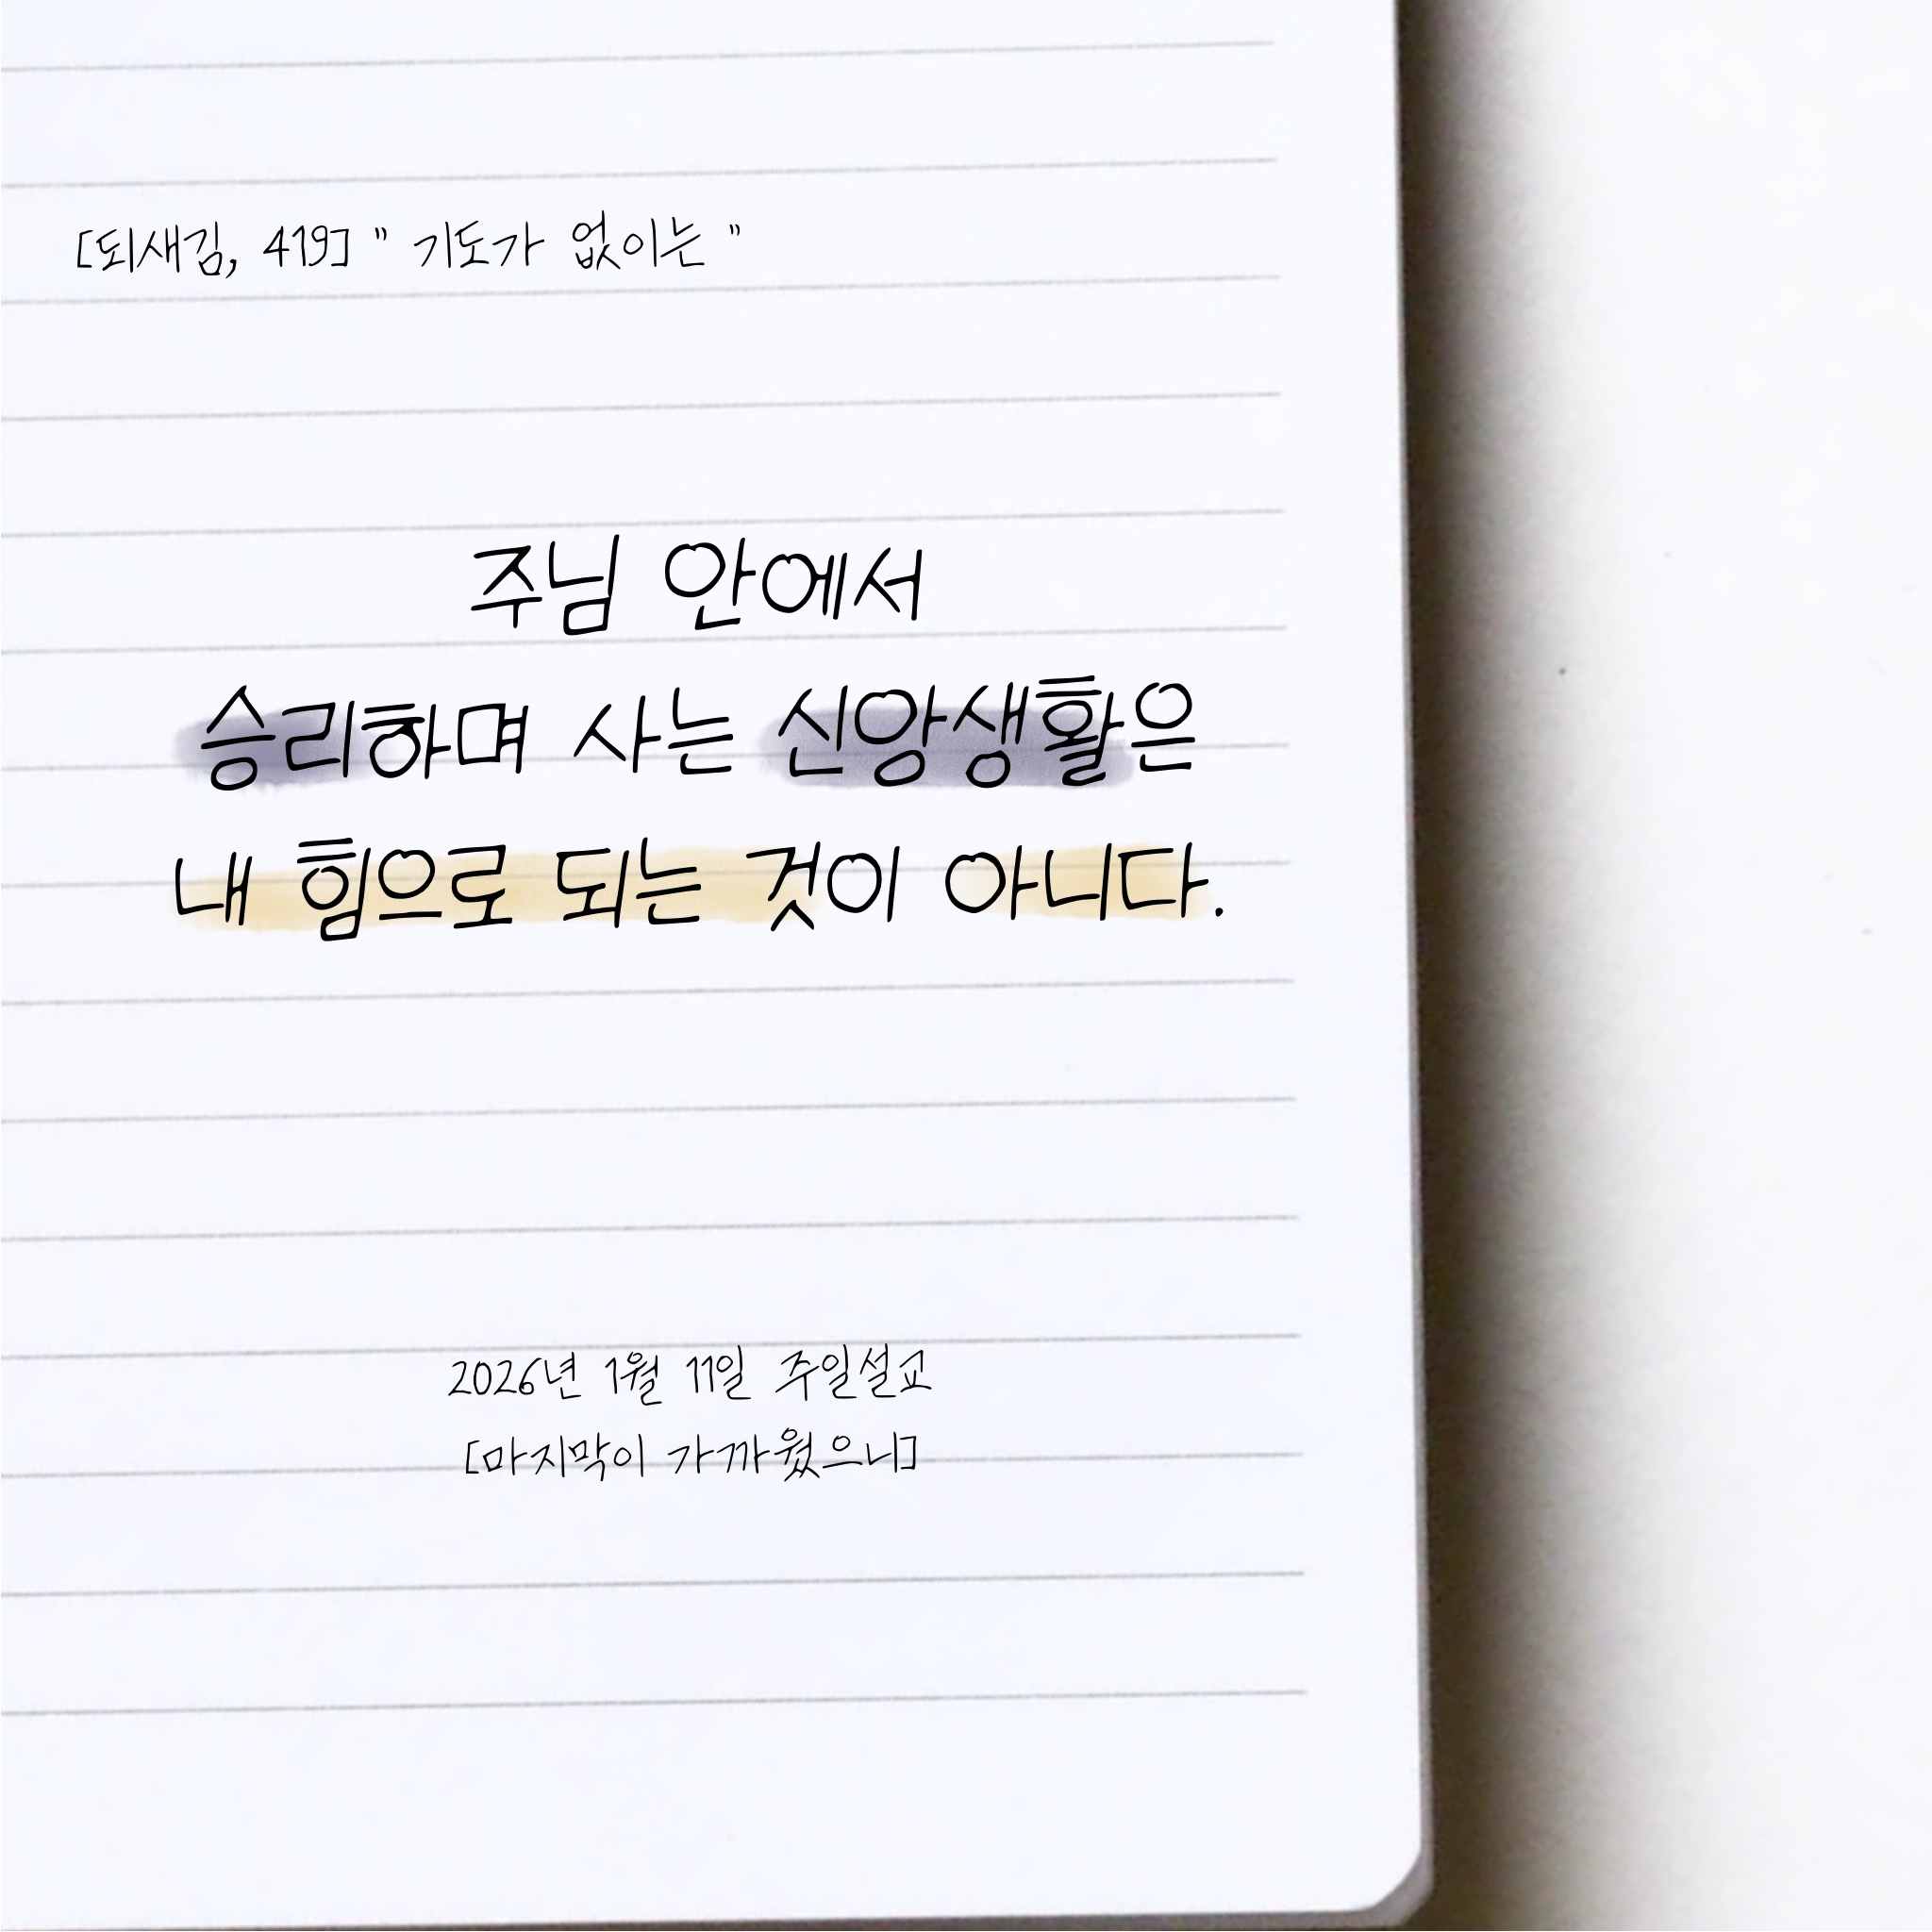 [되새김, 419] " 기도가 없이는 "
주님 안에서
승리하며 사는 신앙생활은
내 힘으로 되는 것이 아니다.
2026년 1월 11일 주일설교
[마지막이 가까웠으니]